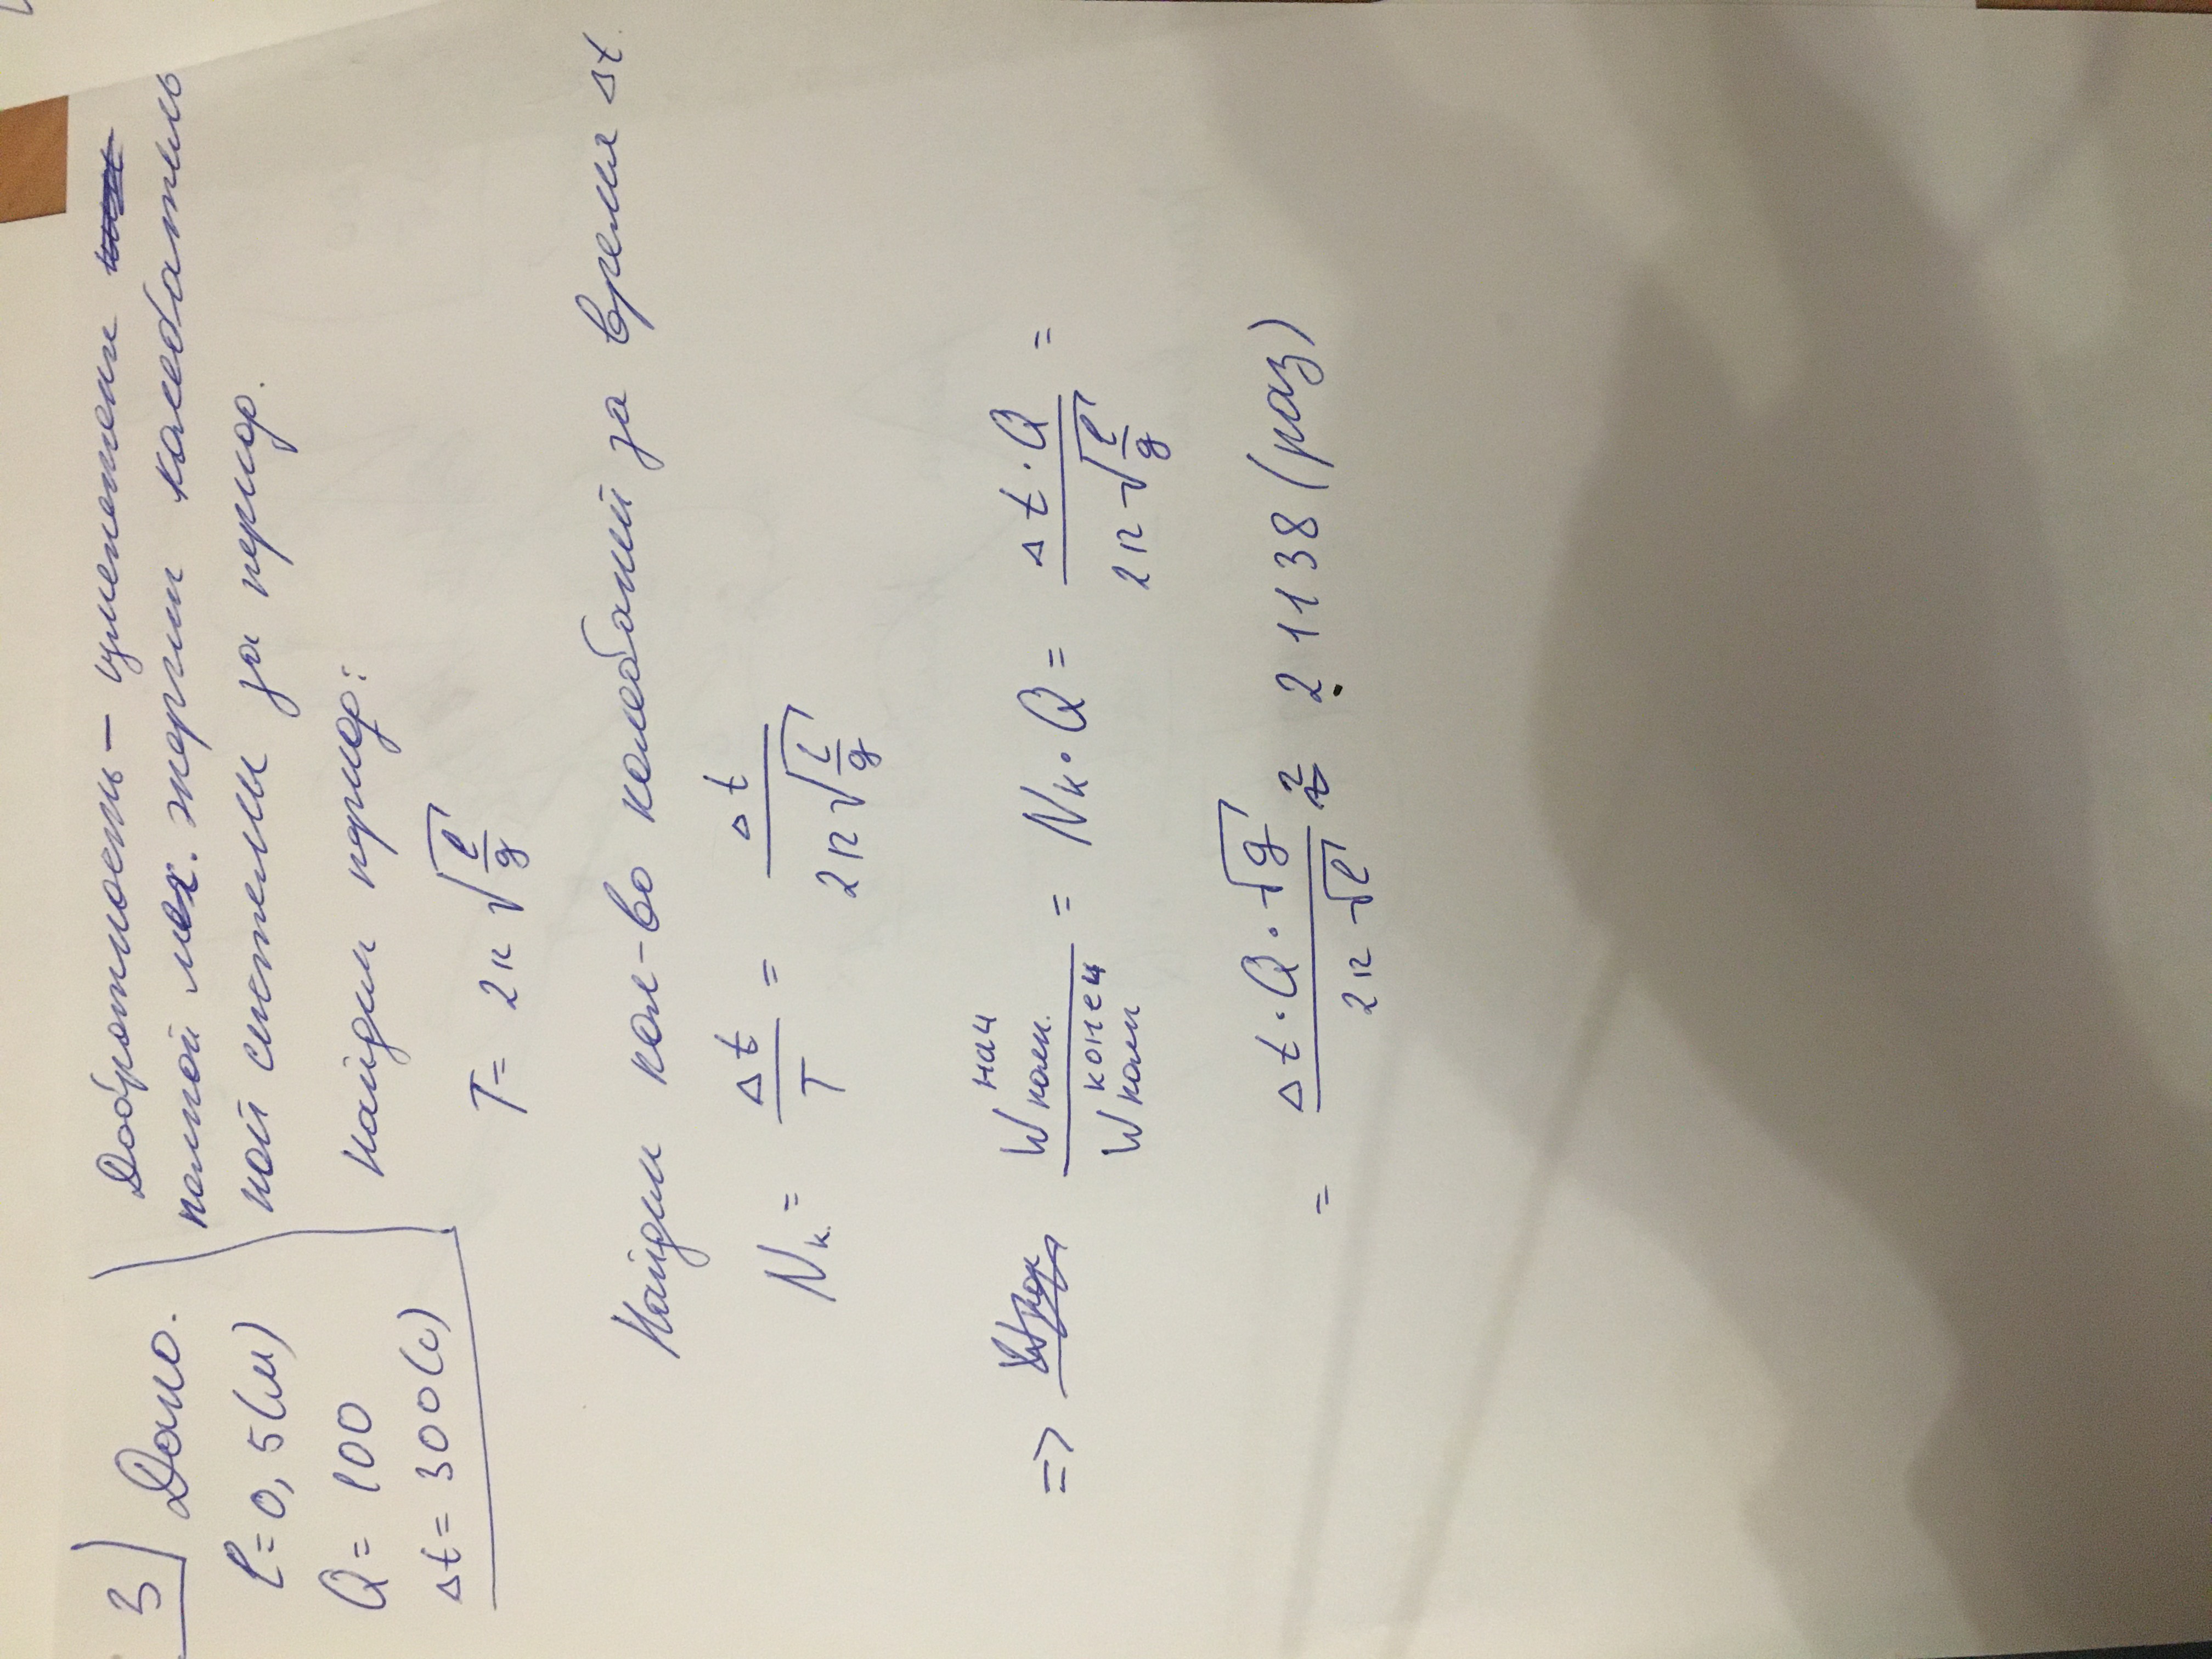 3 Дано.
l = 0,5(м)
Q = 100
Δt = 300(с)
Добротность – изменение
полной мех. энергии колебатель
ной системы за период.
Найдем период:
T = 2π √(l/g)
Найдем кол-во колебаний за время Δt.
Nк. = Δt/T = Δt/(2π√(l/g))
=> Wполн.^нач / Wполн^конеч = Nк · Q = Δt · Q/(2π√(l/g)) =
= Δt · Q · √g/(2π √l) ≈ 21138 (раз)